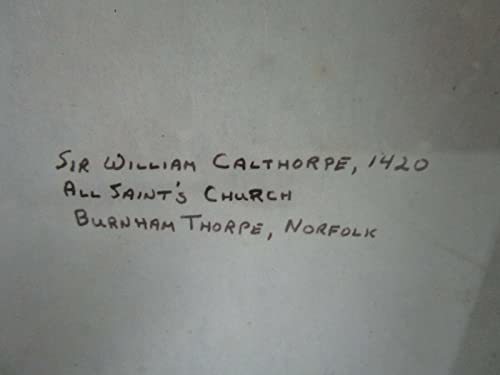 SIR WILLIAM CALTHORPE, 1420
ALL SAINT'S CHURCH
BURNHAM THORPE, NORFOLK